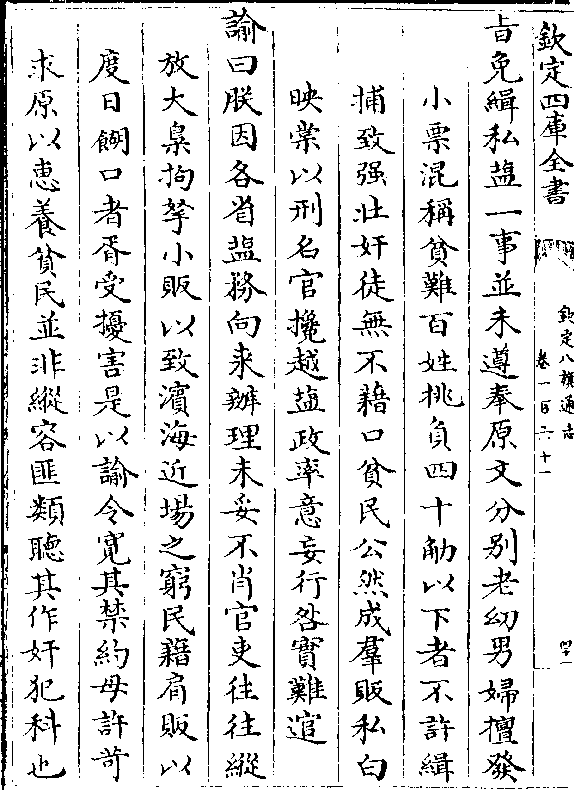 欽定四庫全書
欽定八旗通志
卷一百六十一
旨免緝私鹽一事並未遵奉原文分别老幼男婦擅發
小票混稱貧難百姓挑負四十觔以下者不許緝
捕致强壯奸徒無不藉口貧民公然成羣販私白
映棠以刑名官攙越鹽政率意妄行咎實難逭
諭曰朕因各省鹽務向来辦理未妥不肖官吏往往縱
放大梟拘拏小販以致濱海近場之窮民藉肩販以
度日餬口者胥受擾害是以諭令寛其禁約毋許苛
求原以惠養貧民並非縱容匪類聽其作奸犯科也